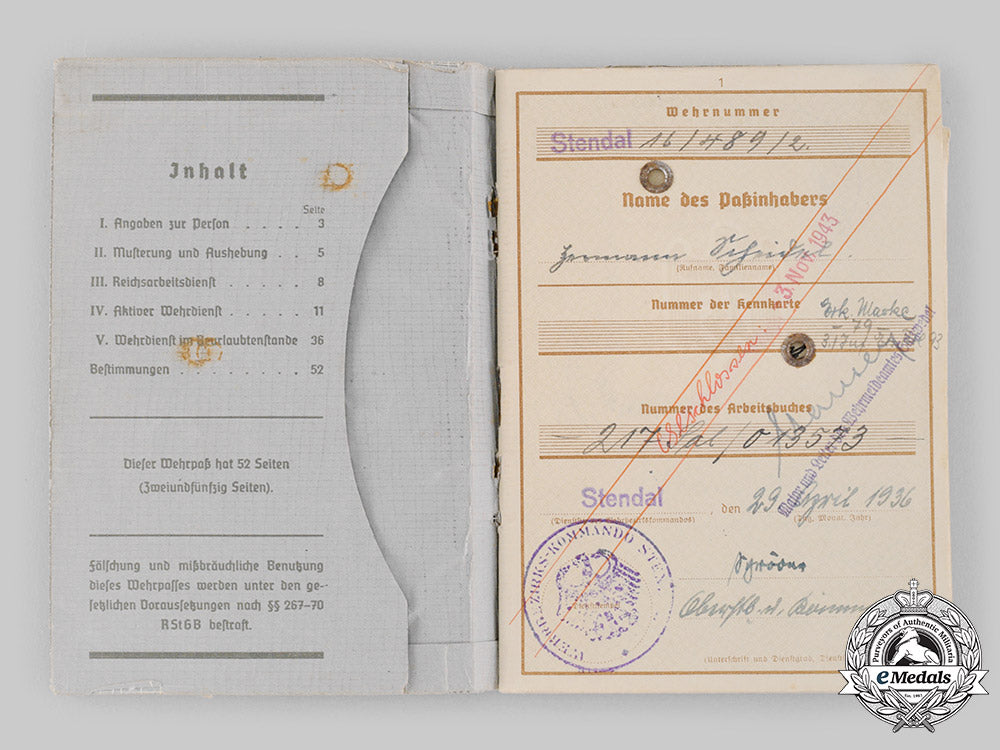 Inhalt
Seite
I. Angaben zur Person . . . . . 3
II. Musterung und Aushebung . . 5
III. Reichsarbeitsdienst . . . . . 8
IV. Aktiver Wehrdienst . . . . . 11
V. Wehrdienst im Beurlaubtenstande 36
Bestimmungen . . . . . . . . 52
Dieser Wehrpaß hat 52 Seiten
(Zweiundfünfzig Seiten).
Fälschung und mißbräuchliche Benutzung
dieses Wehrpasses werden unter den ge-
setzlichen Voraussetzungen nach §§ 267-70
RStGB bestraft.
1
Wehrnummer
Stendal 16/489/2.
Name des Paßinhabers
Hermann
(Rufname, Familienname)
Nummer der Kennkarte
Erk. Marke
79
Geschlossen: 3. Nov. 1943
Nummer des Arbeitsbuches
Major und Leiter des Wehrmeldeamtes
Stendal, den 29 April 1936
(Tag, Monat, Jahr)
WEHRBEZIRKS-KOMMANDO STENDAL
Oberstlt. u.
(Unterschrift und Dienstgrad,
Purveyors of Authentic Militaria
eMedals